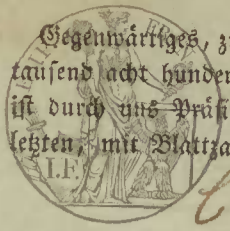 Gegenwärtiges, z
tausend acht hunder
ist durch uns Präsi
letzten, mit Blattza